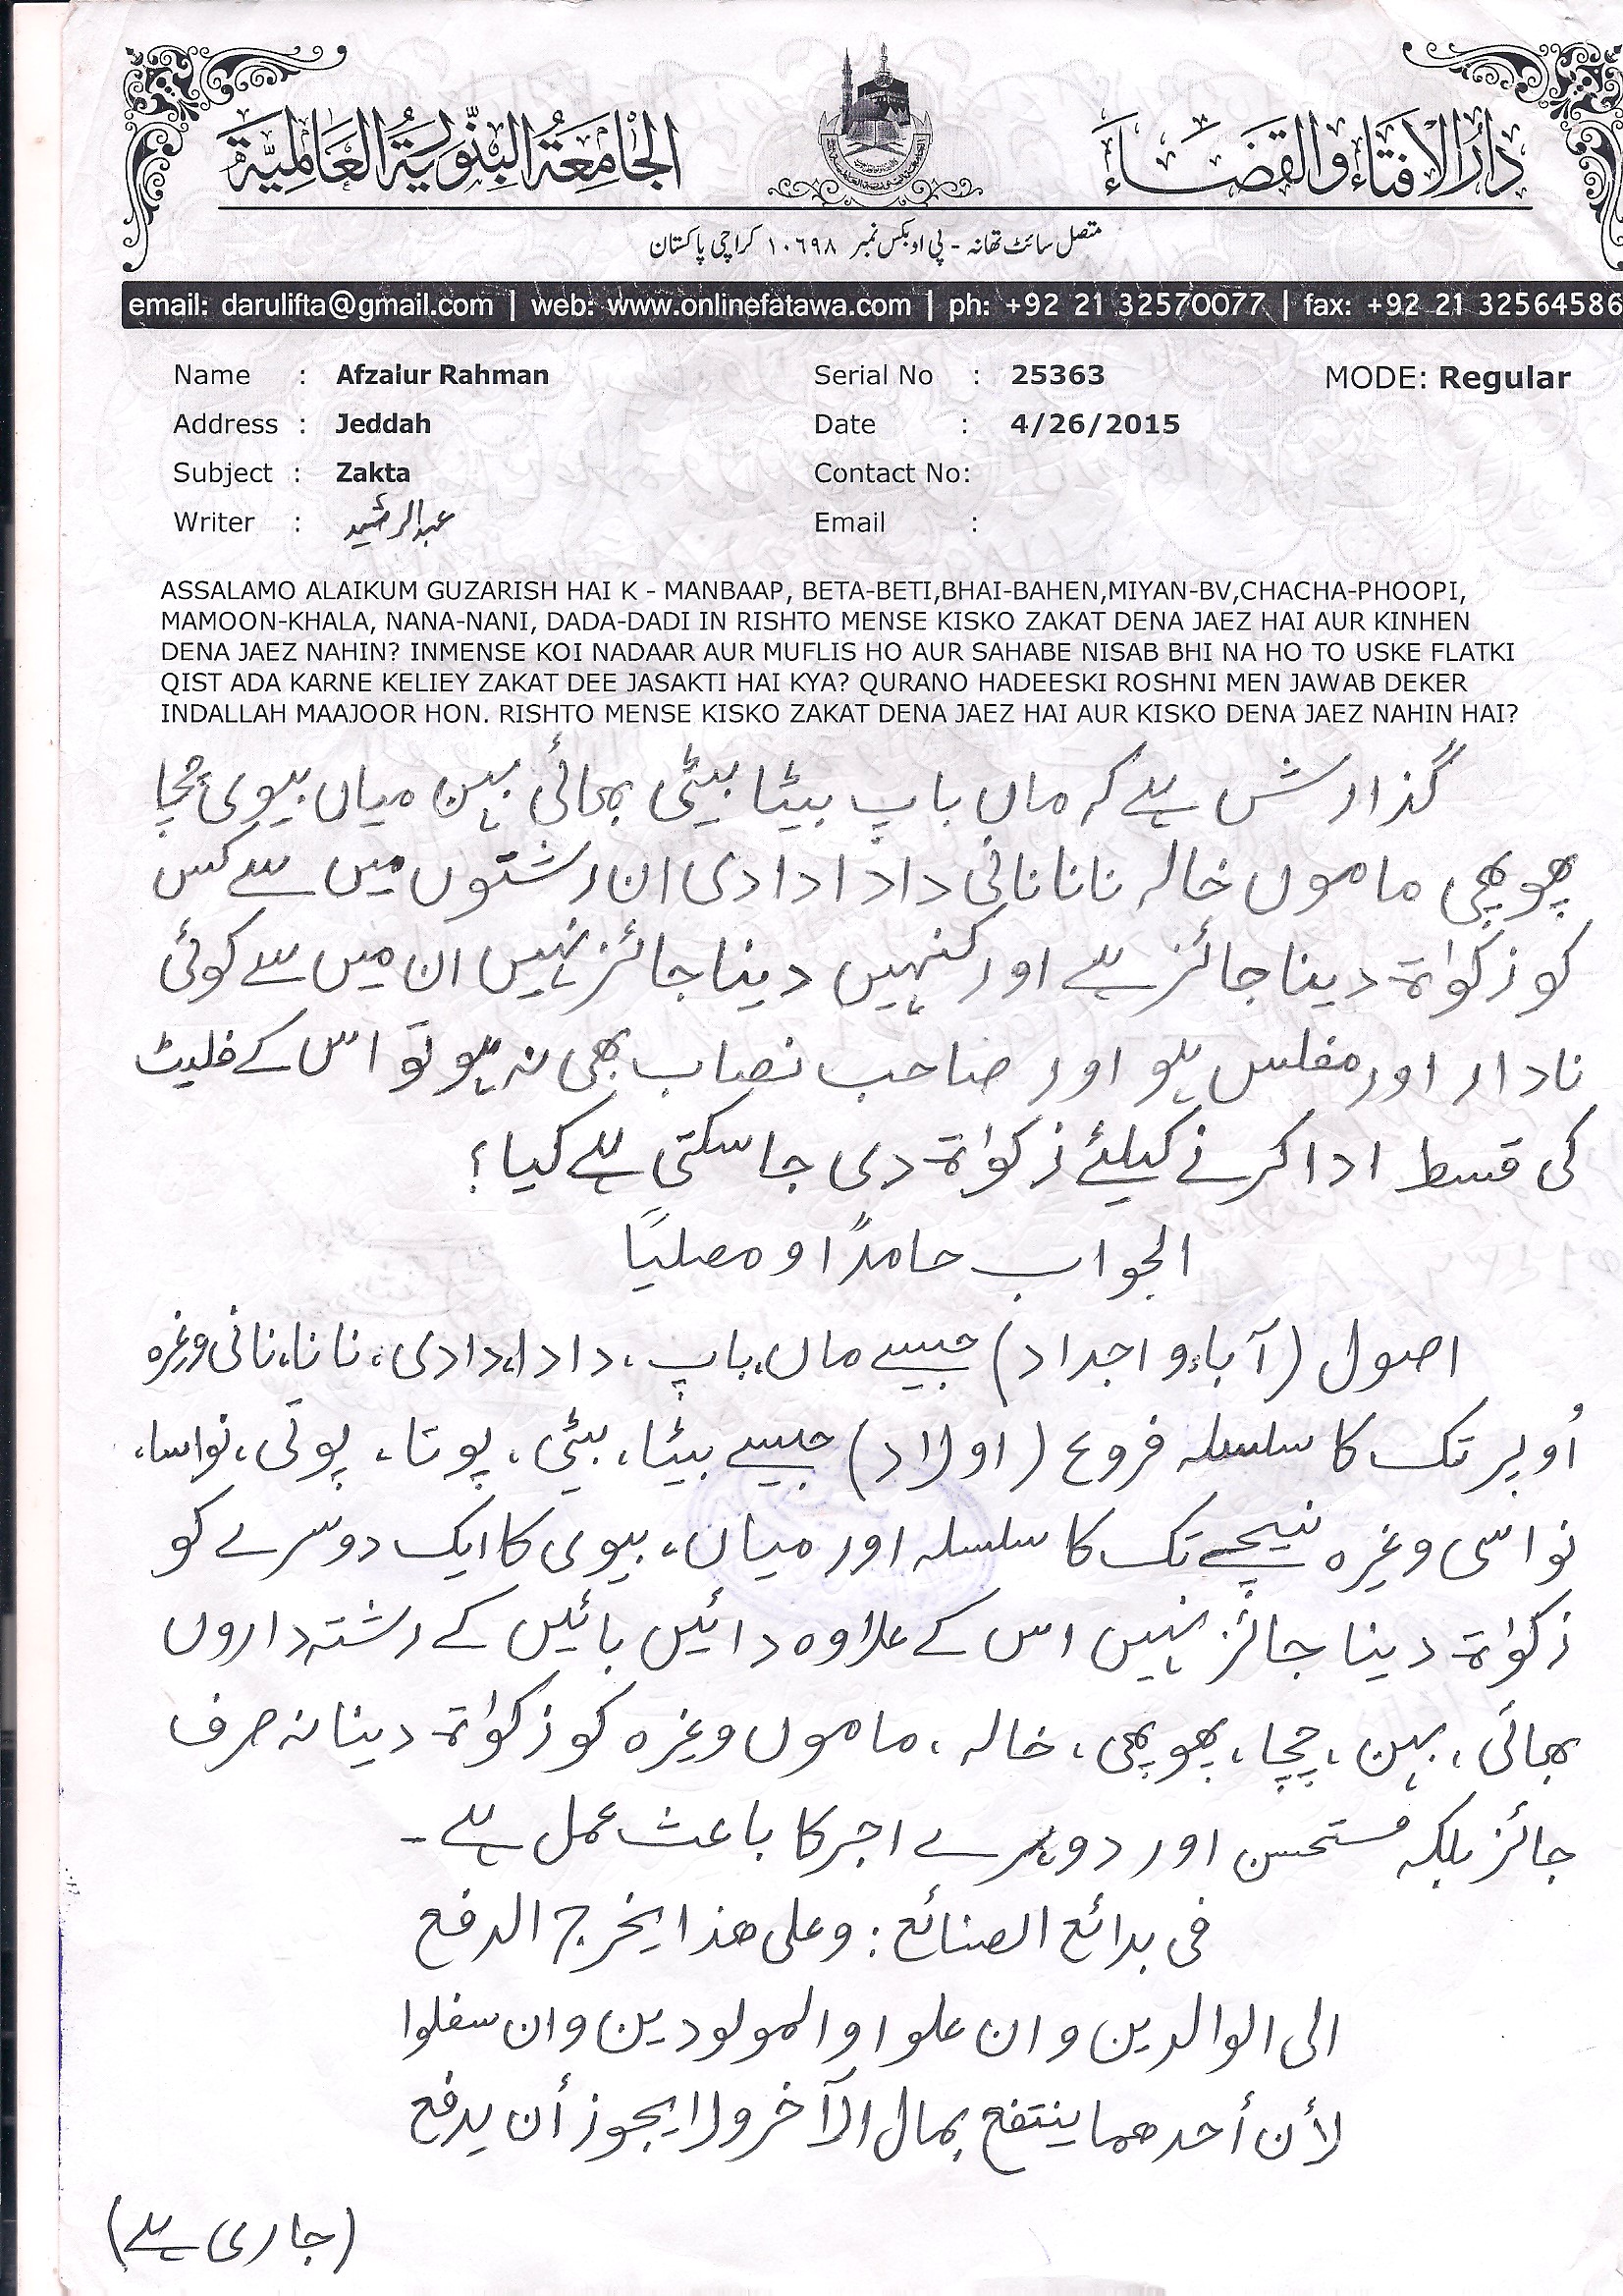 دارُ الافتاء والقضاء
الجامعة البنورية العالمية
متصل سائٹ تھانہ - پی او بکس نمبر ١٠٦٩٨ کراچی پاکستان
email: darulifta@gmail.com | web: www.onlinefatawa.com | ph: +92 21 32570077 | fax: +92 21 32564586
Name : Afzalur Rahman Serial No : 25363 MODE: Regular
Address : Jeddah Date : 4/26/2015
Subject : Zakta Contact No:
Writer : عبدالرشید Email :
ASSALAMO ALAIKUM GUZARISH HAI K - MANBAAP, BETA-BETI,BHAI-BAHEN,MIYAN-BV,CHACHA-PHOOPI,
MAMOON-KHALA, NANA-NANI, DADA-DADI IN RISHTO MENSE KISKO ZAKAT DENA JAEZ HAI AUR KINHEN
DENA JAEZ NAHIN? INMENSE KOI NADAAR AUR MUFLIS HO AUR SAHABE NISAB BHI NA HO TO USKE FLATKI
QIST ADA KARNE KELIEY ZAKAT DEE JASAKTI HAI KYA? QURANO HADEESKI ROSHNI MEN JAWAB DEKER
INDALLAH MAAJOOR HON. RISHTO MENSE KISKO ZAKAT DENA JAEZ HAI AUR KISKO DENA JAEZ NAHIN HAI?
گذارش ہے کہ ماں باپ بیٹا بیٹی بھائی بہن میاں بیوی چچا
پھوپھی ماموں خالہ نانا نانی دادا دادی ان رشتوں میں سے کس
کو زکوٰۃ دینا جائز ہے اور کنہیں دینا جائز نہیں ان میں سے کوئی
نادار اور مفلس ہو اور صاحب نصاب بھی نہ ہو تو اس کے فلیٹ
کی قسط ادا کرنے کیلئے زکوٰۃ دی جا سکتی ہے کیا؟
الجواب حامدًا و مصلیًا
اصول (آباء و اجداد) جیسے ماں، باپ، دادا، دادی، نانا، نانی وغیرہ
اُوپر تک کا سلسلہ فروع (اولاد) جیسے بیٹا، بیٹی، پوتا، پوتی، نواسا،
نواسی وغیرہ نیچے تک کا سلسلہ اور میاں، بیوی کا ایک دوسرے کو
زکوٰۃ دینا جائز نہیں اس کے علاوہ دائیں بائیں کے رشتہ داروں
بھائی، بہن، چچا، پھوپھی، خالہ، ماموں وغیرہ کو زکوٰۃ دینا نہ صرف
جائز بلکہ مستحسن اور دوہرے اجر کا باعث عمل ہے۔
فی بدائع الصنائع: وعلی هذا یخرج الدفع
الی الوالدین و ان علوا و المولودین و ان سفلوا
لأن أحدهما ینتفع بمال الآخر ولا یجوز أن یدفع
(جاری ہے)